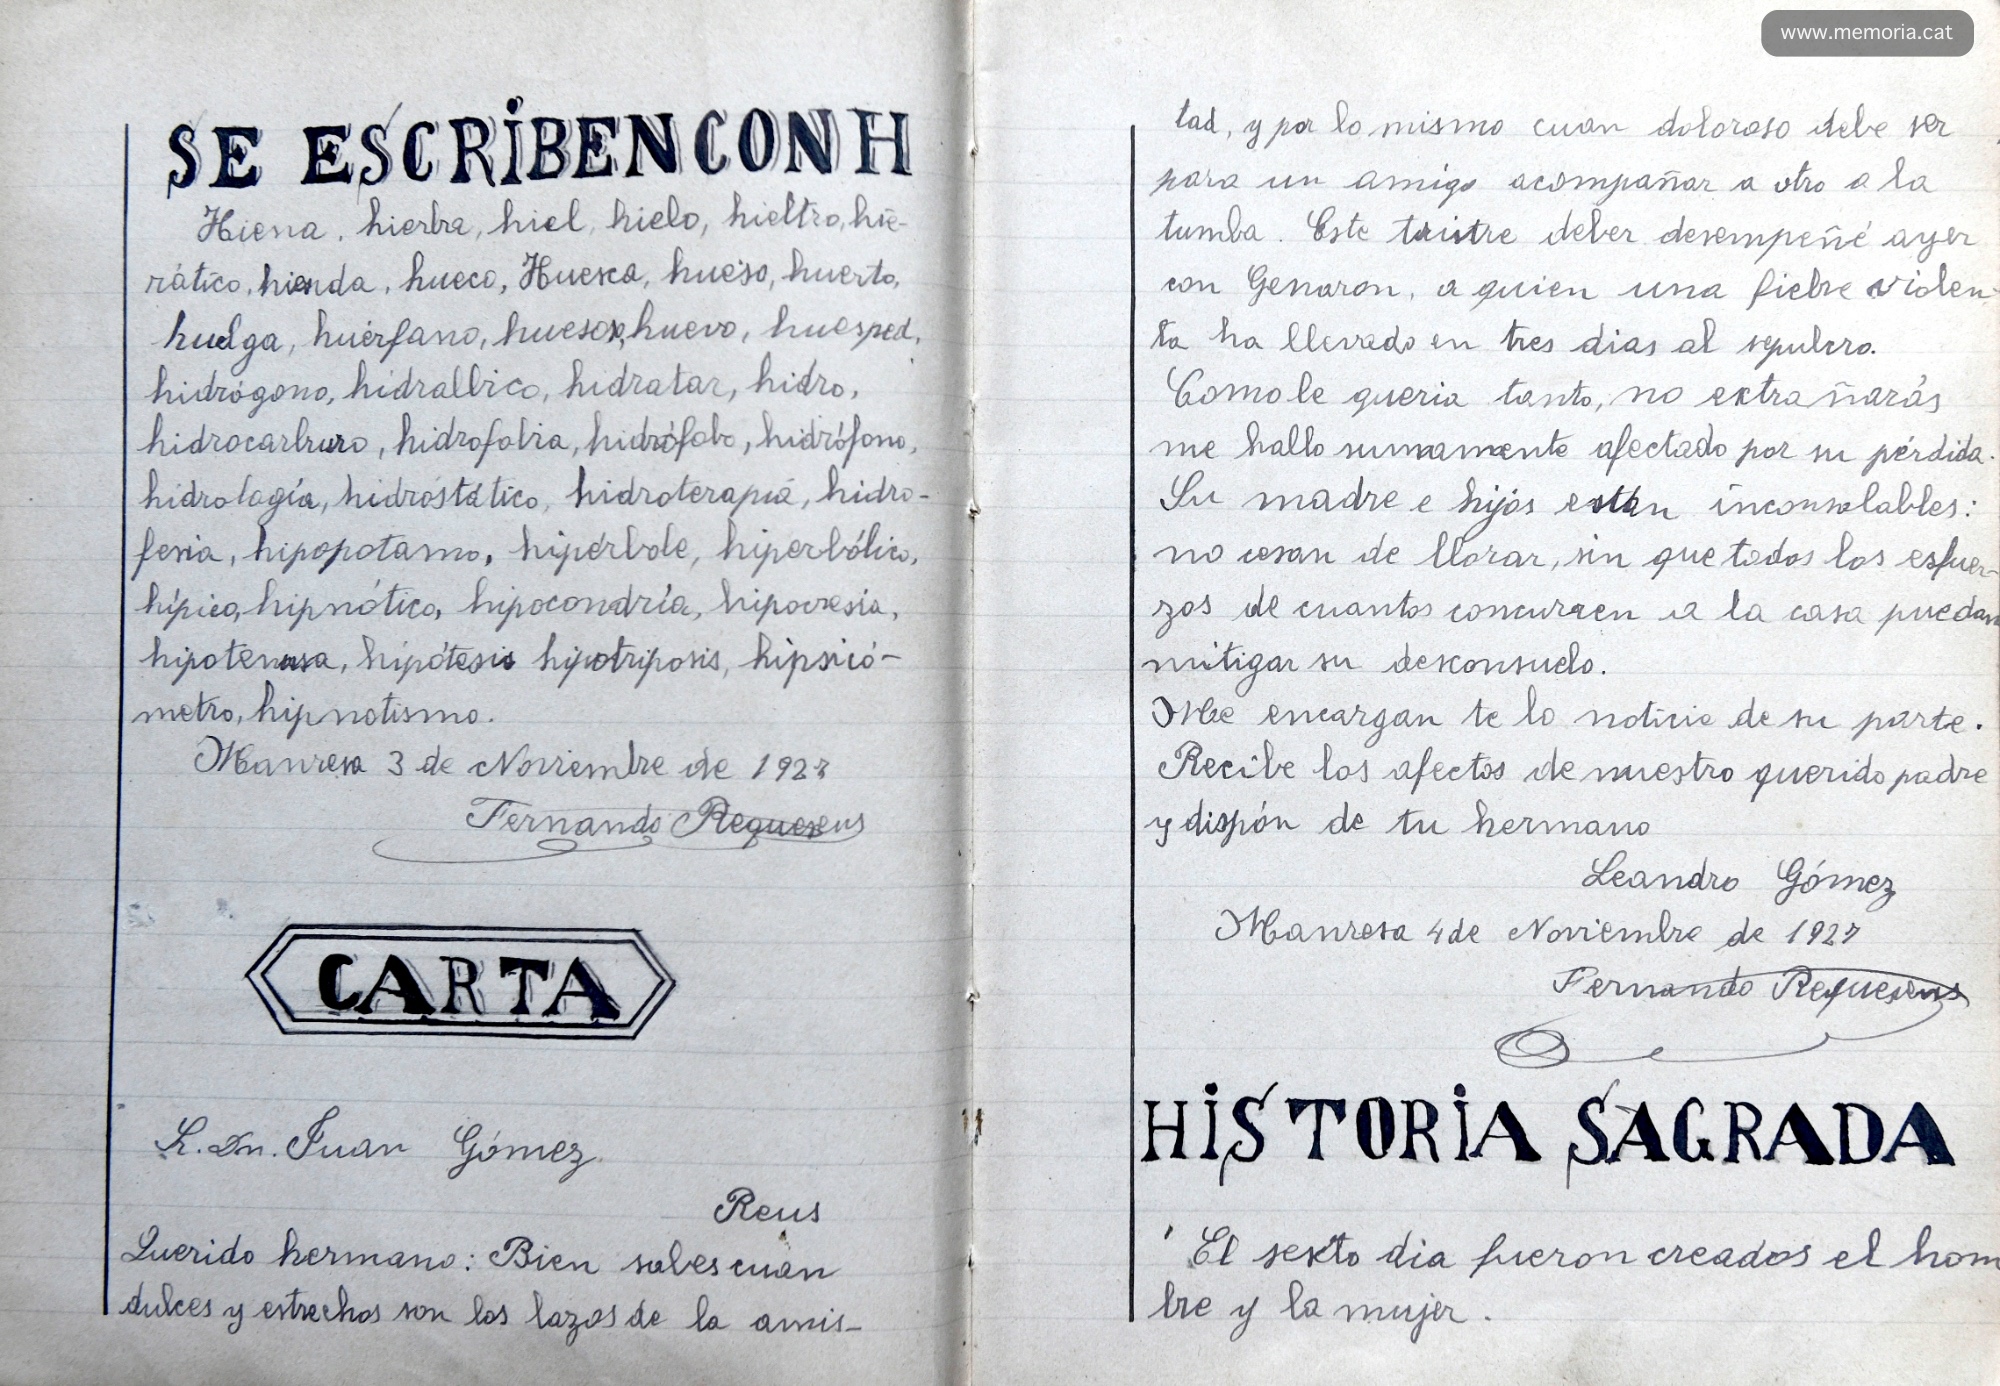 www.memoria.cat
SE ESCRIBEN CON H
Hiena, hierba, hiel, hielo, hieltro, hie-
rático, hienda, hueco, Huesca, hueso, huerto,
huelga, huérfano, huesos, huevo, huesped,
hidrógono, hidrallico, hidratar, hidro,
hidrocarburo, hidrofobia, hidrófobo, hidrófono,
hidrologia, hidróstático, hidroterapia, hidro-
fesia, hipopotamo, hipérbole, hiperbólico,
hípico, hipnótico, hipocondría, hipocresia,
hipotenusa, hipótesis hipotriposis, hipsió-
metro, hipnotismo.
Manresa 3 de Noviembre de 1927
Fernando Requesens
CARTA
S. Dn. Juan Gómez.
Reus
Querido hermano: Bien sabes cuan
dulces y estrechos son los lazos de la amis-
tad, y por lo mismo cuan doloroso debe ser
para un amigo acompañar a otro a la
tumba. Este tristre deber desempeñé ayer
con Genaron, a quien una fiebre violen-
ta ha llevado en tres dias al sepulcro.
Como le queria tanto, no extrañarás
me hallo sumamente afectado por su pérdida.
Su madre e hijos están inconsolables:
no cesan de llorar, sin que todos los esfuer-
zos de cuantos concurren a la casa puedan
mitigar su desconsuelo.
Me encargan te lo noticie de su parte.
Recibe los afectos de nuestro querido padre
y dispón de tu hermano
Leandro Gómez
Manresa 4 de Noviembre de 1927
Fernando Requesens
HISTORIA SAGRADA
El sexto dia fueron creados el hom
bre y la mujer.